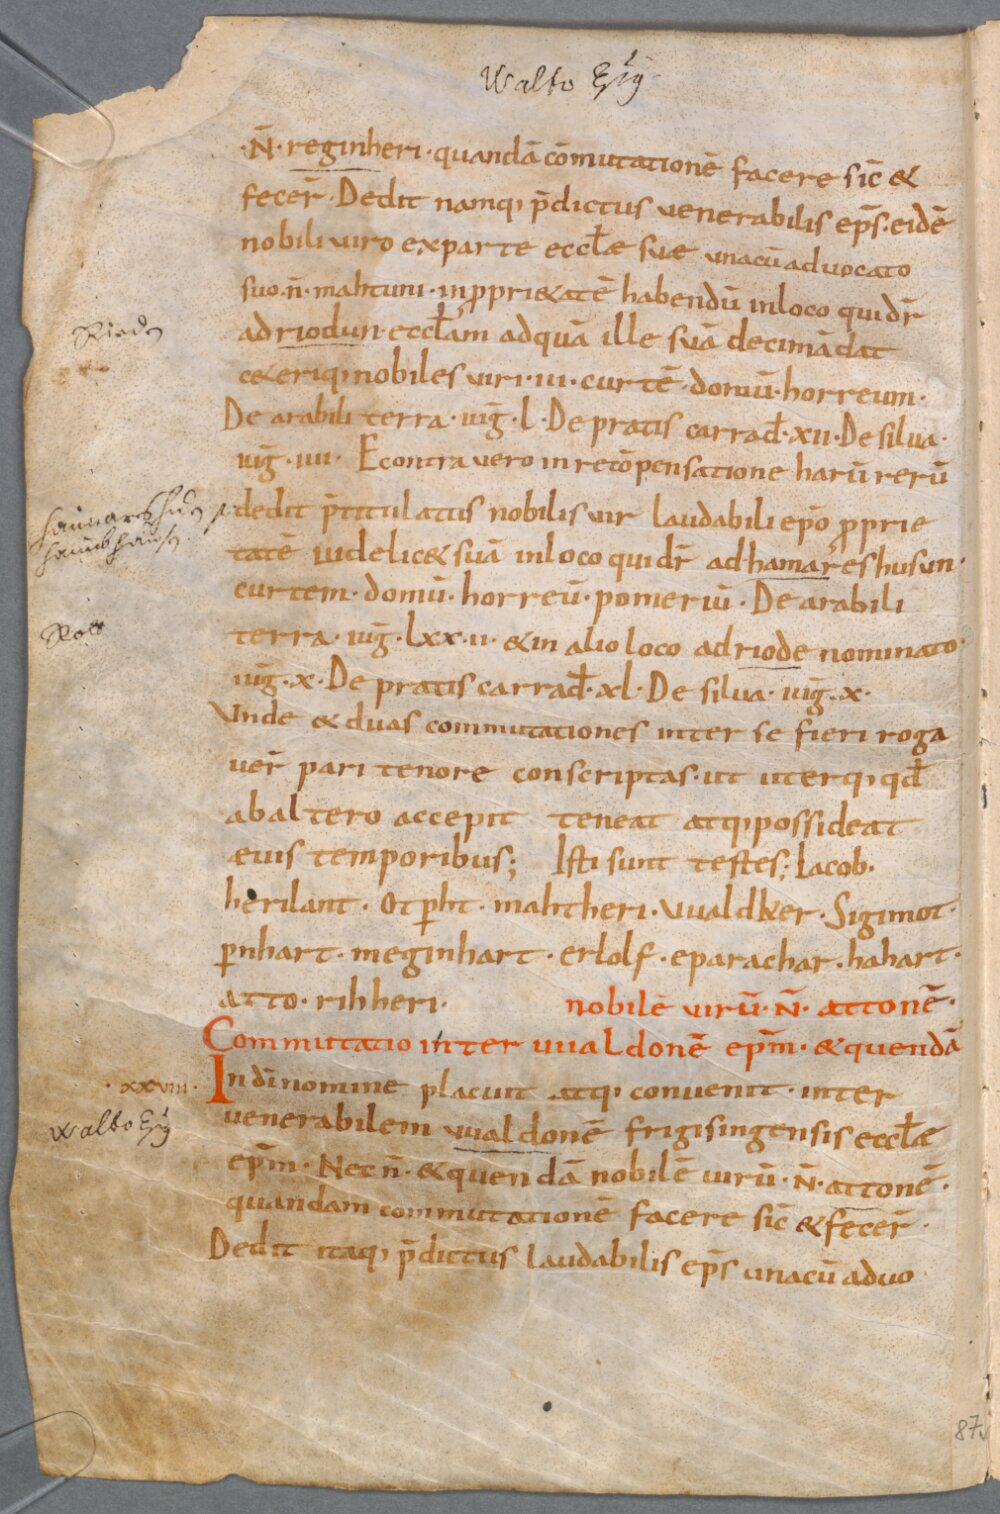 Walto Ep̄s
·N̄· reginheri· quandā cōmutationē facere sic̄ &
fecer̄· Dedit namq; p̄dictus venerabilis ep̄s· eidē
nobili viro ex parte eccl̄ae suae unacū advocato
suo· n̄· mahtuni· in ꝓpri&atē habendū in loco qui dr̄
Rieden
ad riodun· eccl̄am ad quā ille suā decimā dat
c&eriq; nobiles viri· III· curtē· domū· horreum·
De arabili terra· iuḡ· l· De pratis carrad̄· xii· De silva·
iuḡ· iiii· E contra vero in recōpensatione harū rerū
dedit p̄titulatus nobilis vir laudabili ep̄o ꝓprie
tatē videlic& suā in loco qui dr̄ ad hamareshusun·
curtem· domū· horreū· pomeriū· De arabili
terra· iuḡ· lxx·ii· & in alio loco ad riode nominato·
iuḡ· x· De pratis carrad̄· xl· De silva· iuḡ· x·
Unde & duas commutationes inter se fieri roga
ver̄ pari tenore conscriptas· ut uterq; qd̄
ab altero accepit teneat atq; possideat
ęvis temporibus; Isti sunt testes; Iacob·
herilant· Otꝑht· mahtheri· uualdker· Sigimot·
ꝑnhart· meginhart· erlolf· eparachar· hahart·
atto· rihheri·
nobilē virū· N̄· attonē·
Commutatio inter uualdonē ep̄m· & quendā
·xxviii·
In dī nomine placuit atq; convenit· inter
Walto Ep̄s
venerabilem uualdonē frigisingensis eccl̄ae
ep̄m· Nec n̄· & quendā nobilē virū· N̄· attonē·
quandam commutationē facere sic̄ & fecer̄·
Dedit itaq; p̄dictus laudabilis ep̄s unacū advo
87v